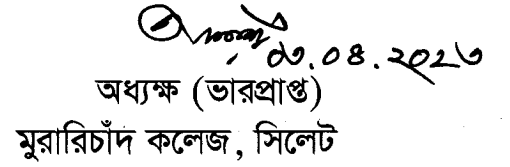 ০৩.০৪.২০২৩
অধ্যক্ষ (ভারপ্রাপ্ত)
মুরারিচাঁদ কলেজ, সিলেট